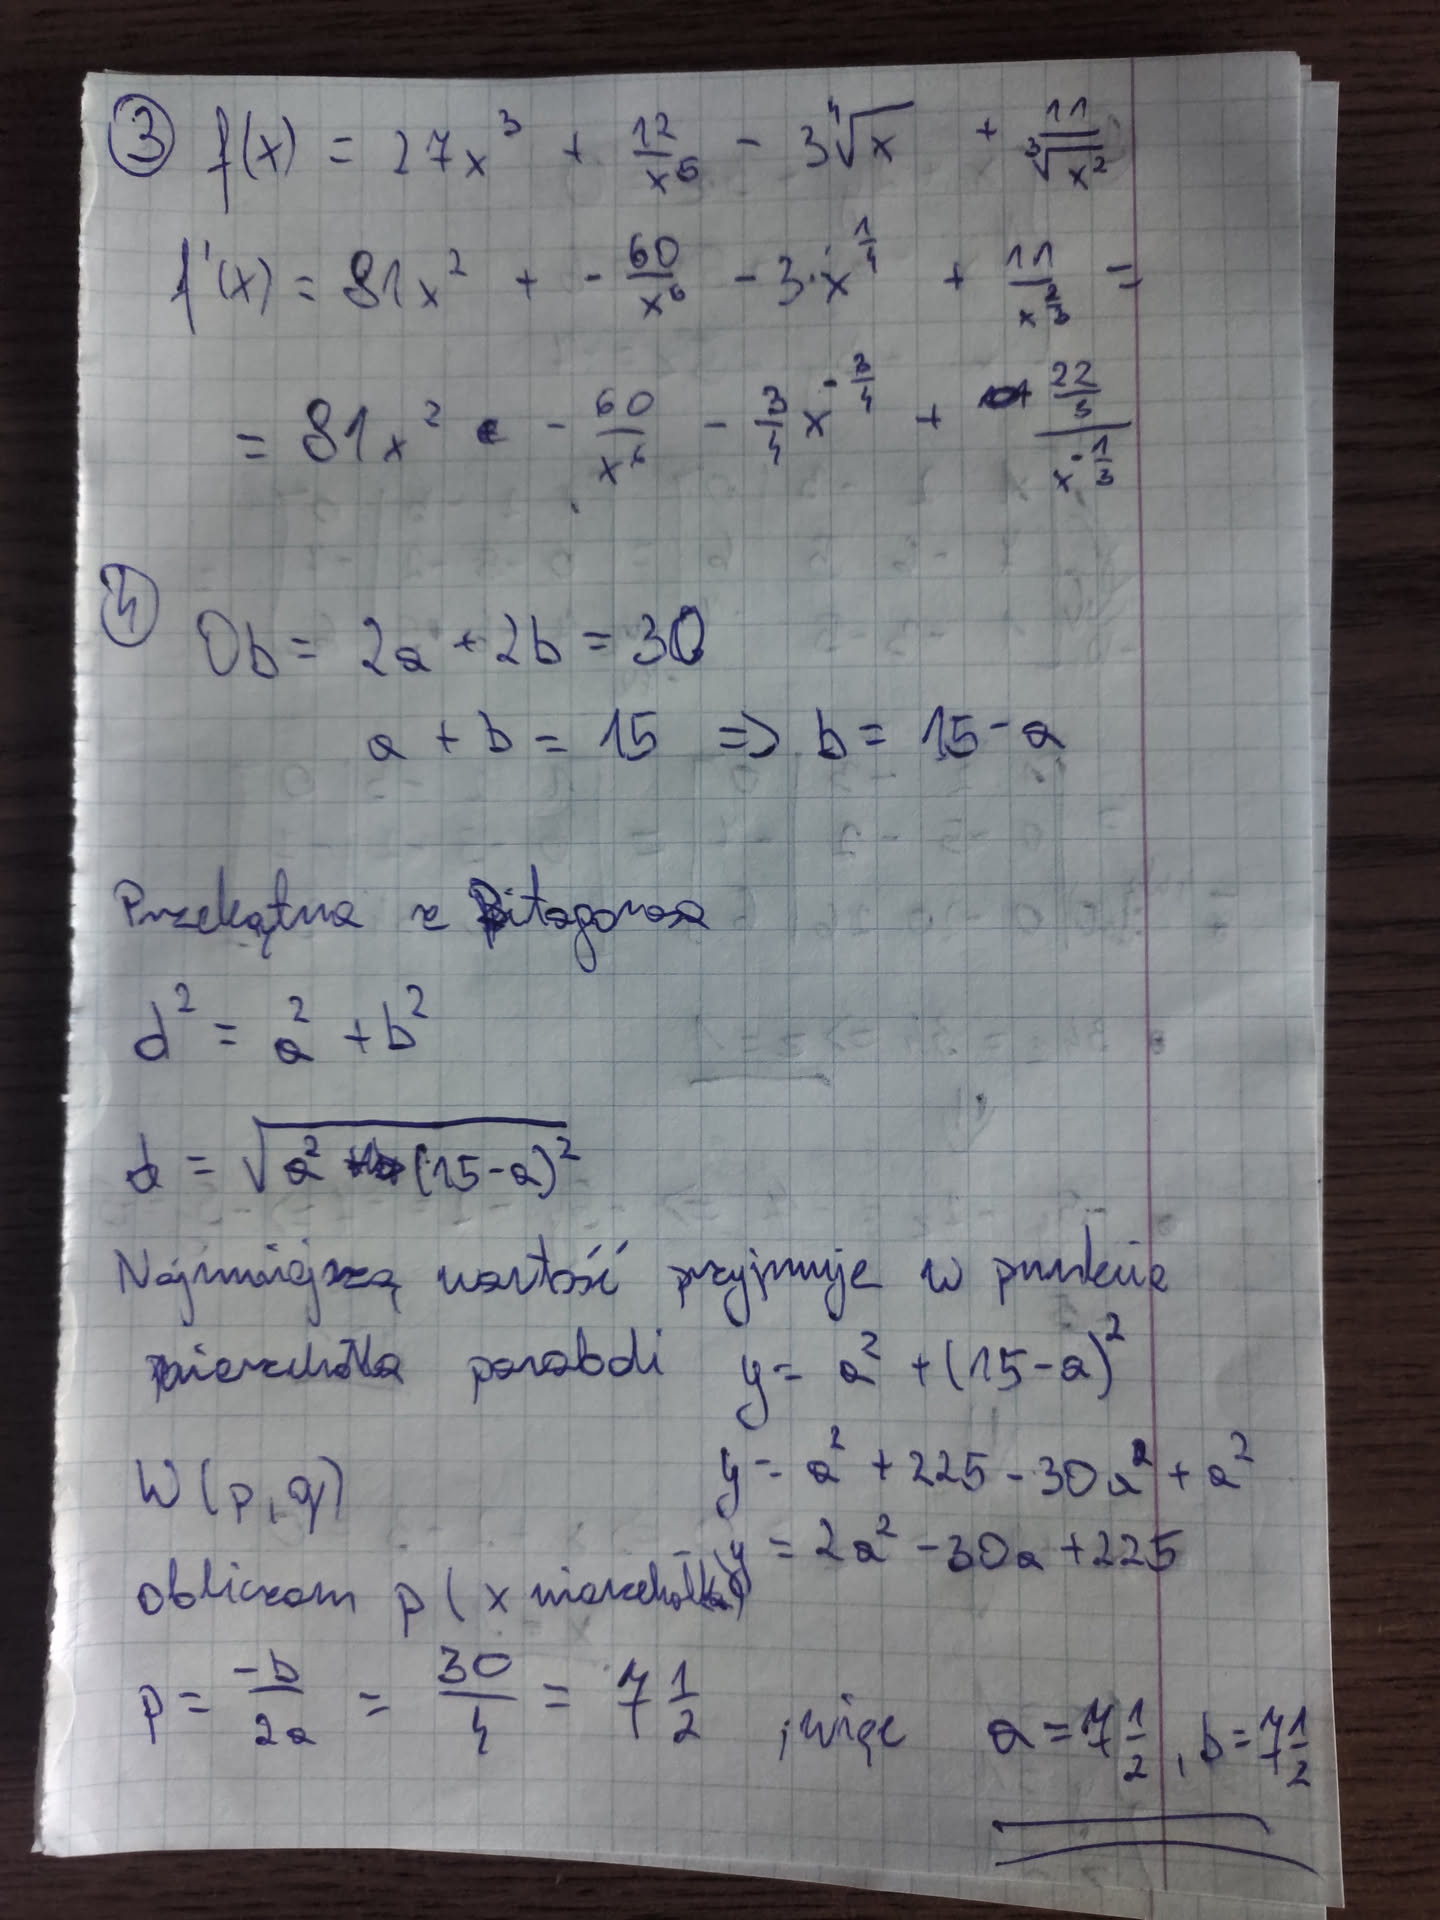 ③ f(x) = 27x³ + 12/x⁵ - 3⁴√x + 11/³√x²
f'(x) = 81x² + - 60/x⁶ - 3·x^(1/4) + 11/x^(2/3) =
= 81x² - 60/x⁶ - 3/4 x^(-3/4) + (22/3)/x^(-1/3)
④ Ob = 2a + 2b = 30
a + b = 15 => b = 15 - a
Przekątna z Pitagorasa
d² = a² + b²
d = √(a² + (15-a)²)
Najmniejszą wartość przyjmuje w punkcie
wierzchołka paraboli y = a² + (15-a)²
W(p,q) y = a² + 225 - 30a + a²
y = 2a² - 30a + 225
obliczam p (x wierzchołka)
p = -b/2a = 30/4 = 7 1/2 , więc a = 7 1/2 , b = 7 1/2